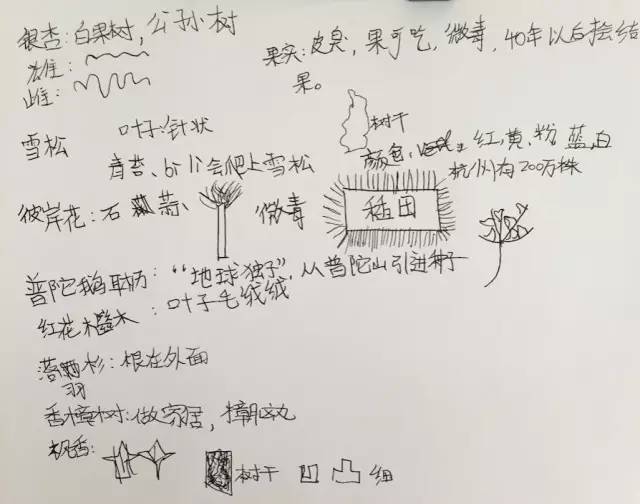 银杏:白果树,公孙树
雄:
雌:
果实:皮臭,果可吃,微毒,40年以后才结
果。
雪松 叶子:针状
树干
青苔、bì lì会爬上雪松
颜色, 红,黄,粉,蓝,白
杭州有200万株
彼岸花:石蒜、 微毒
稻田
普陀鹅耳枥:“地球独子”,从普陀山引进种子
红花檵木:叶子毛绒绒
落羽杉:根在外面
香樟树:做家居,樟脑丸
枫香:
树干 凹 凸 细